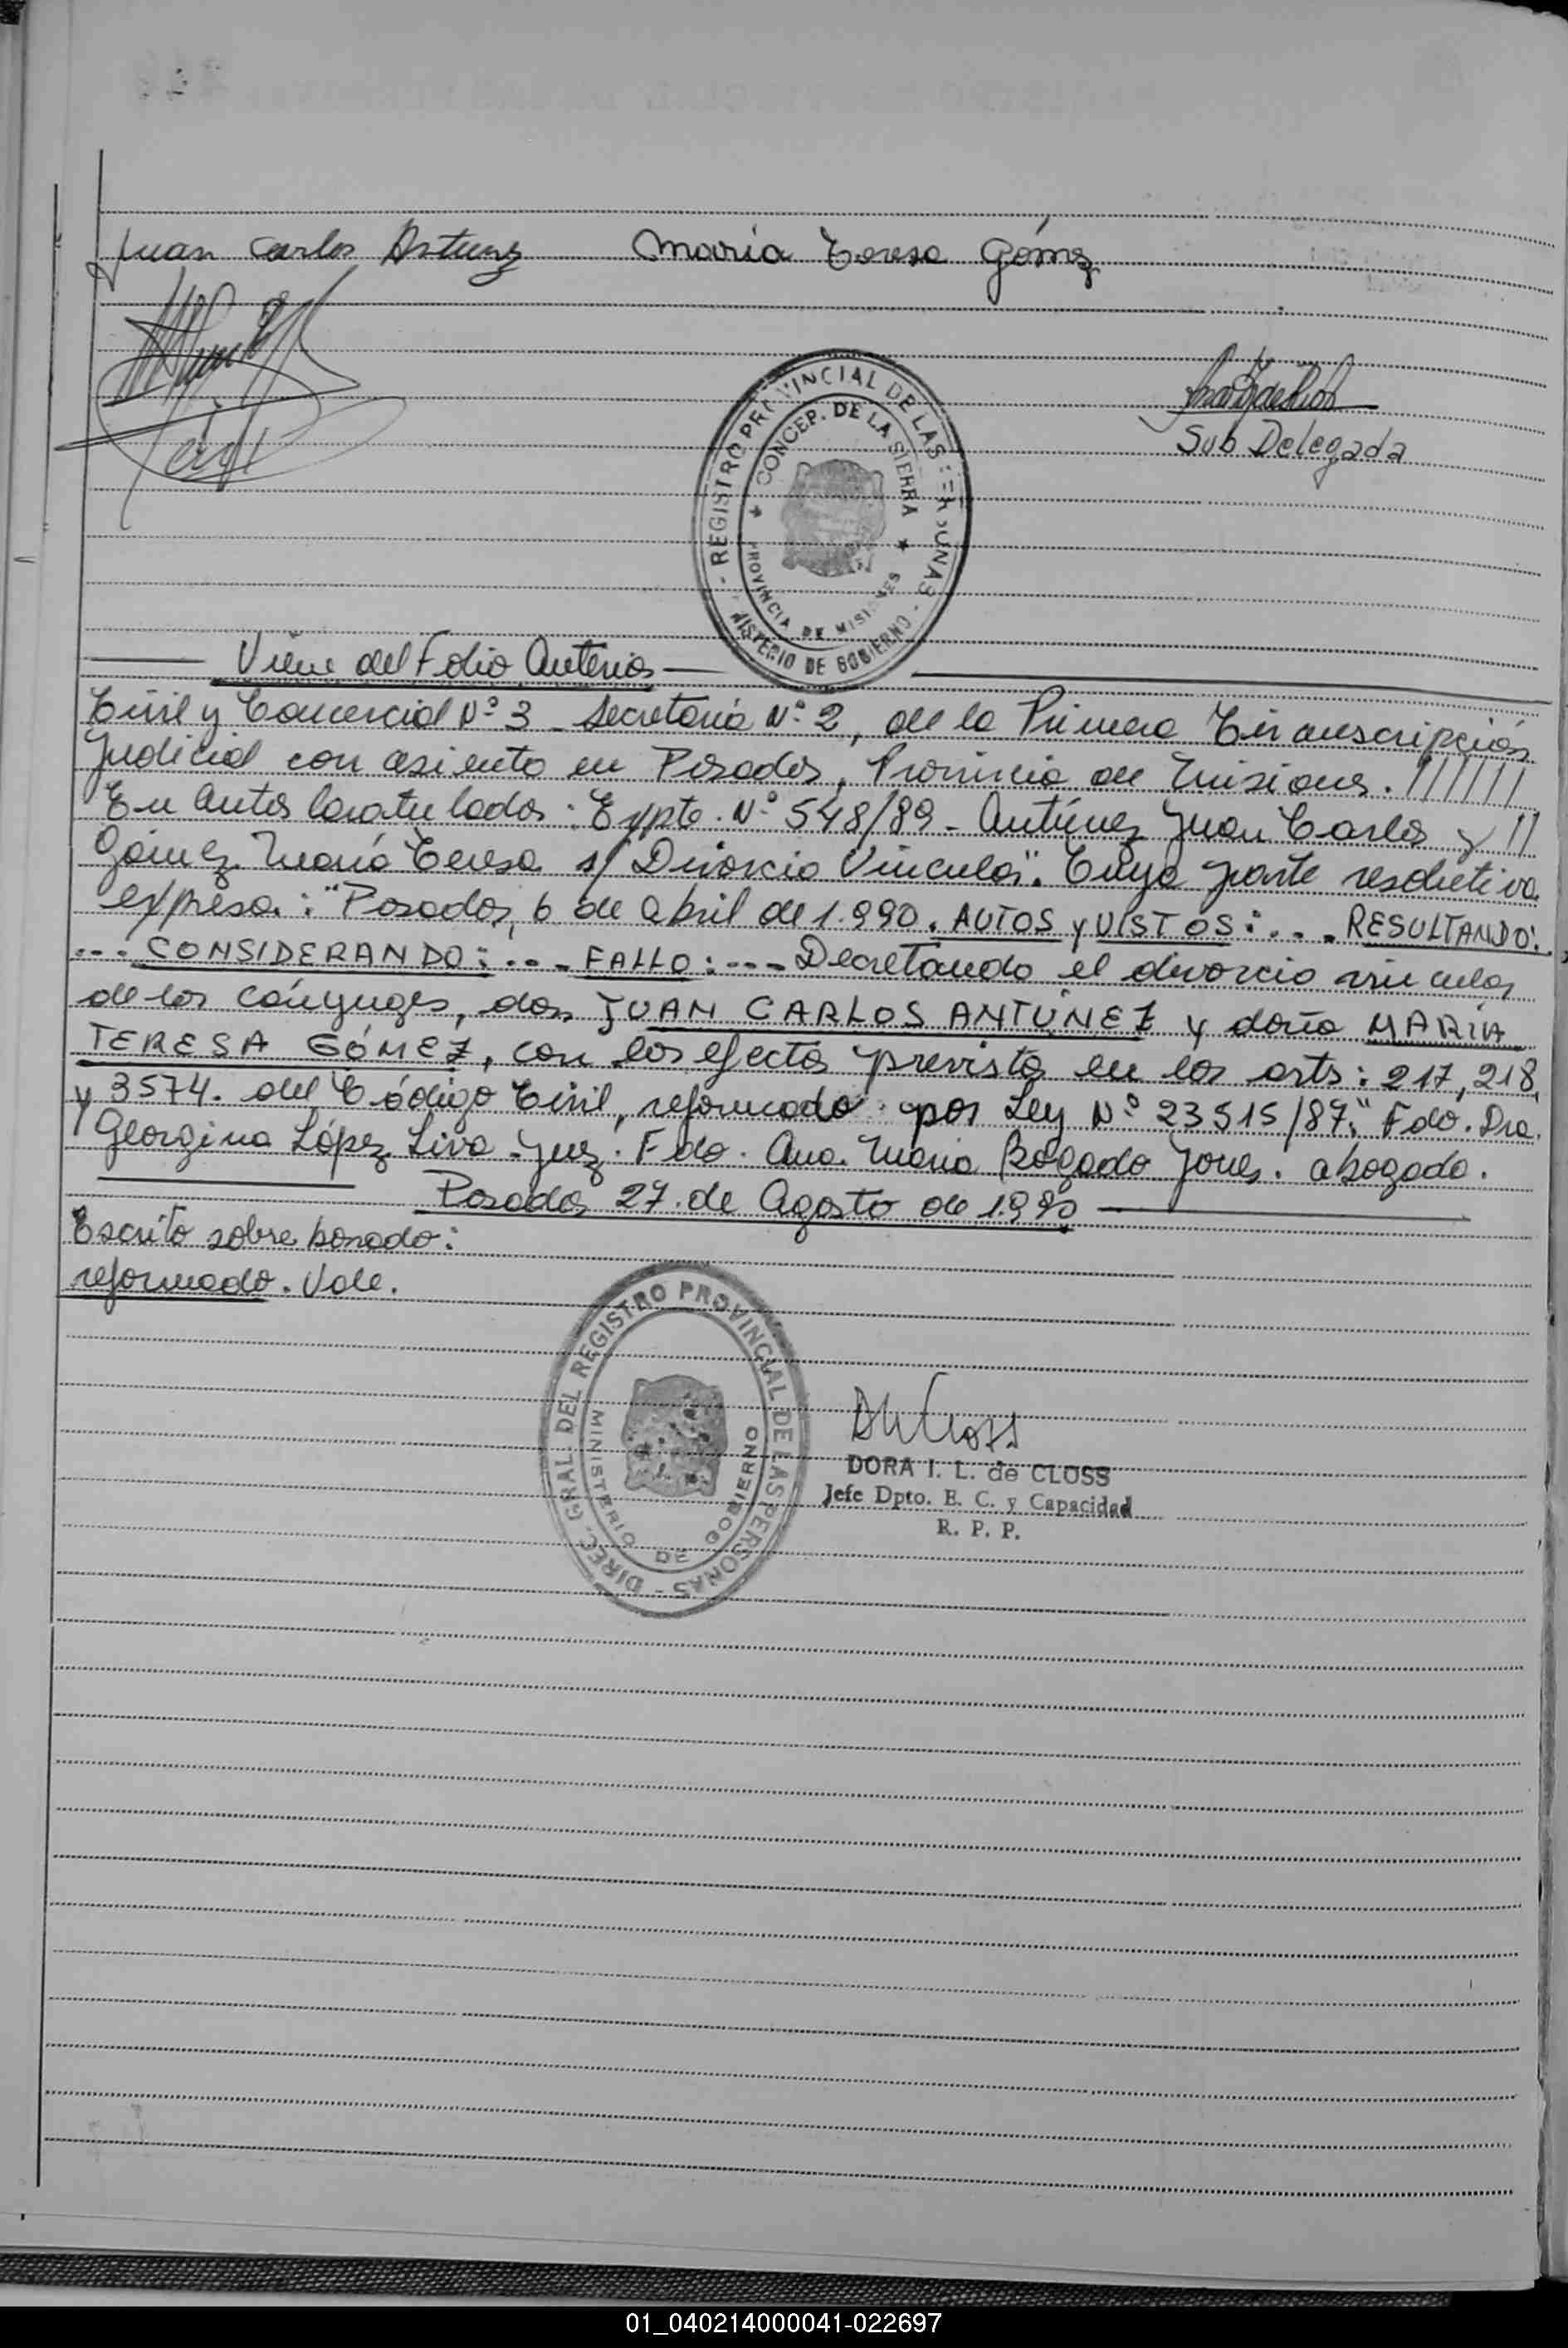 Juan Carlos Antunez María Teresa Gómez
Sub Delegada
- REGISTRO PROVINCIAL DE LAS PERSONAS -
MINISTERIO DE GOBIERNO
★ CONCEP. DE LA SIERRA ★
PROVINCIA DE MISIONES
Viene del Folio Anterior
Civil y Comercial Nº 3 - Secretaría Nº 2, de la Primera Circunscripción
Judicial con asiento en Posadas, Provincia de Misiones. //////
En Autos Caratulados: Expte. Nº 548/89 - Antúnez Juan Carlos y //
Gómez María Teresa s/ Divorcio Vincular". Cuya parte resolutiva
expresa: "Posadas, 6 de Abril de 1.990. AUTOS y VISTOS: ... RESULTANDO:
... CONSIDERANDO: ... FALLO: --- Decretando el divorcio vincular
de los cónyuges, don JUAN CARLOS ANTÚNEZ y doña MARÍA
TERESA GÓMEZ, con los efectos previstos en los arts: 217, 218,
y 3574. del Código Civil, reformado por Ley Nº 23515/87." Fdo. Dra.
Georgina López Liva - Juez. Fdo. Ana. María Bogado Jones. abogada.
Posadas 27 de Agosto de 1.990
Escrito sobre borrado:
reformado. Vale.
DIREC. GRAL. DEL REGISTRO PROVINCIAL DE LAS PERSONAS -
MINISTERIO DE GOBIERNO
DORA I. L. de CLOSS
Jefe Dpto. E. C. y Capacidad
R. P. P.
01_040214000041-022697